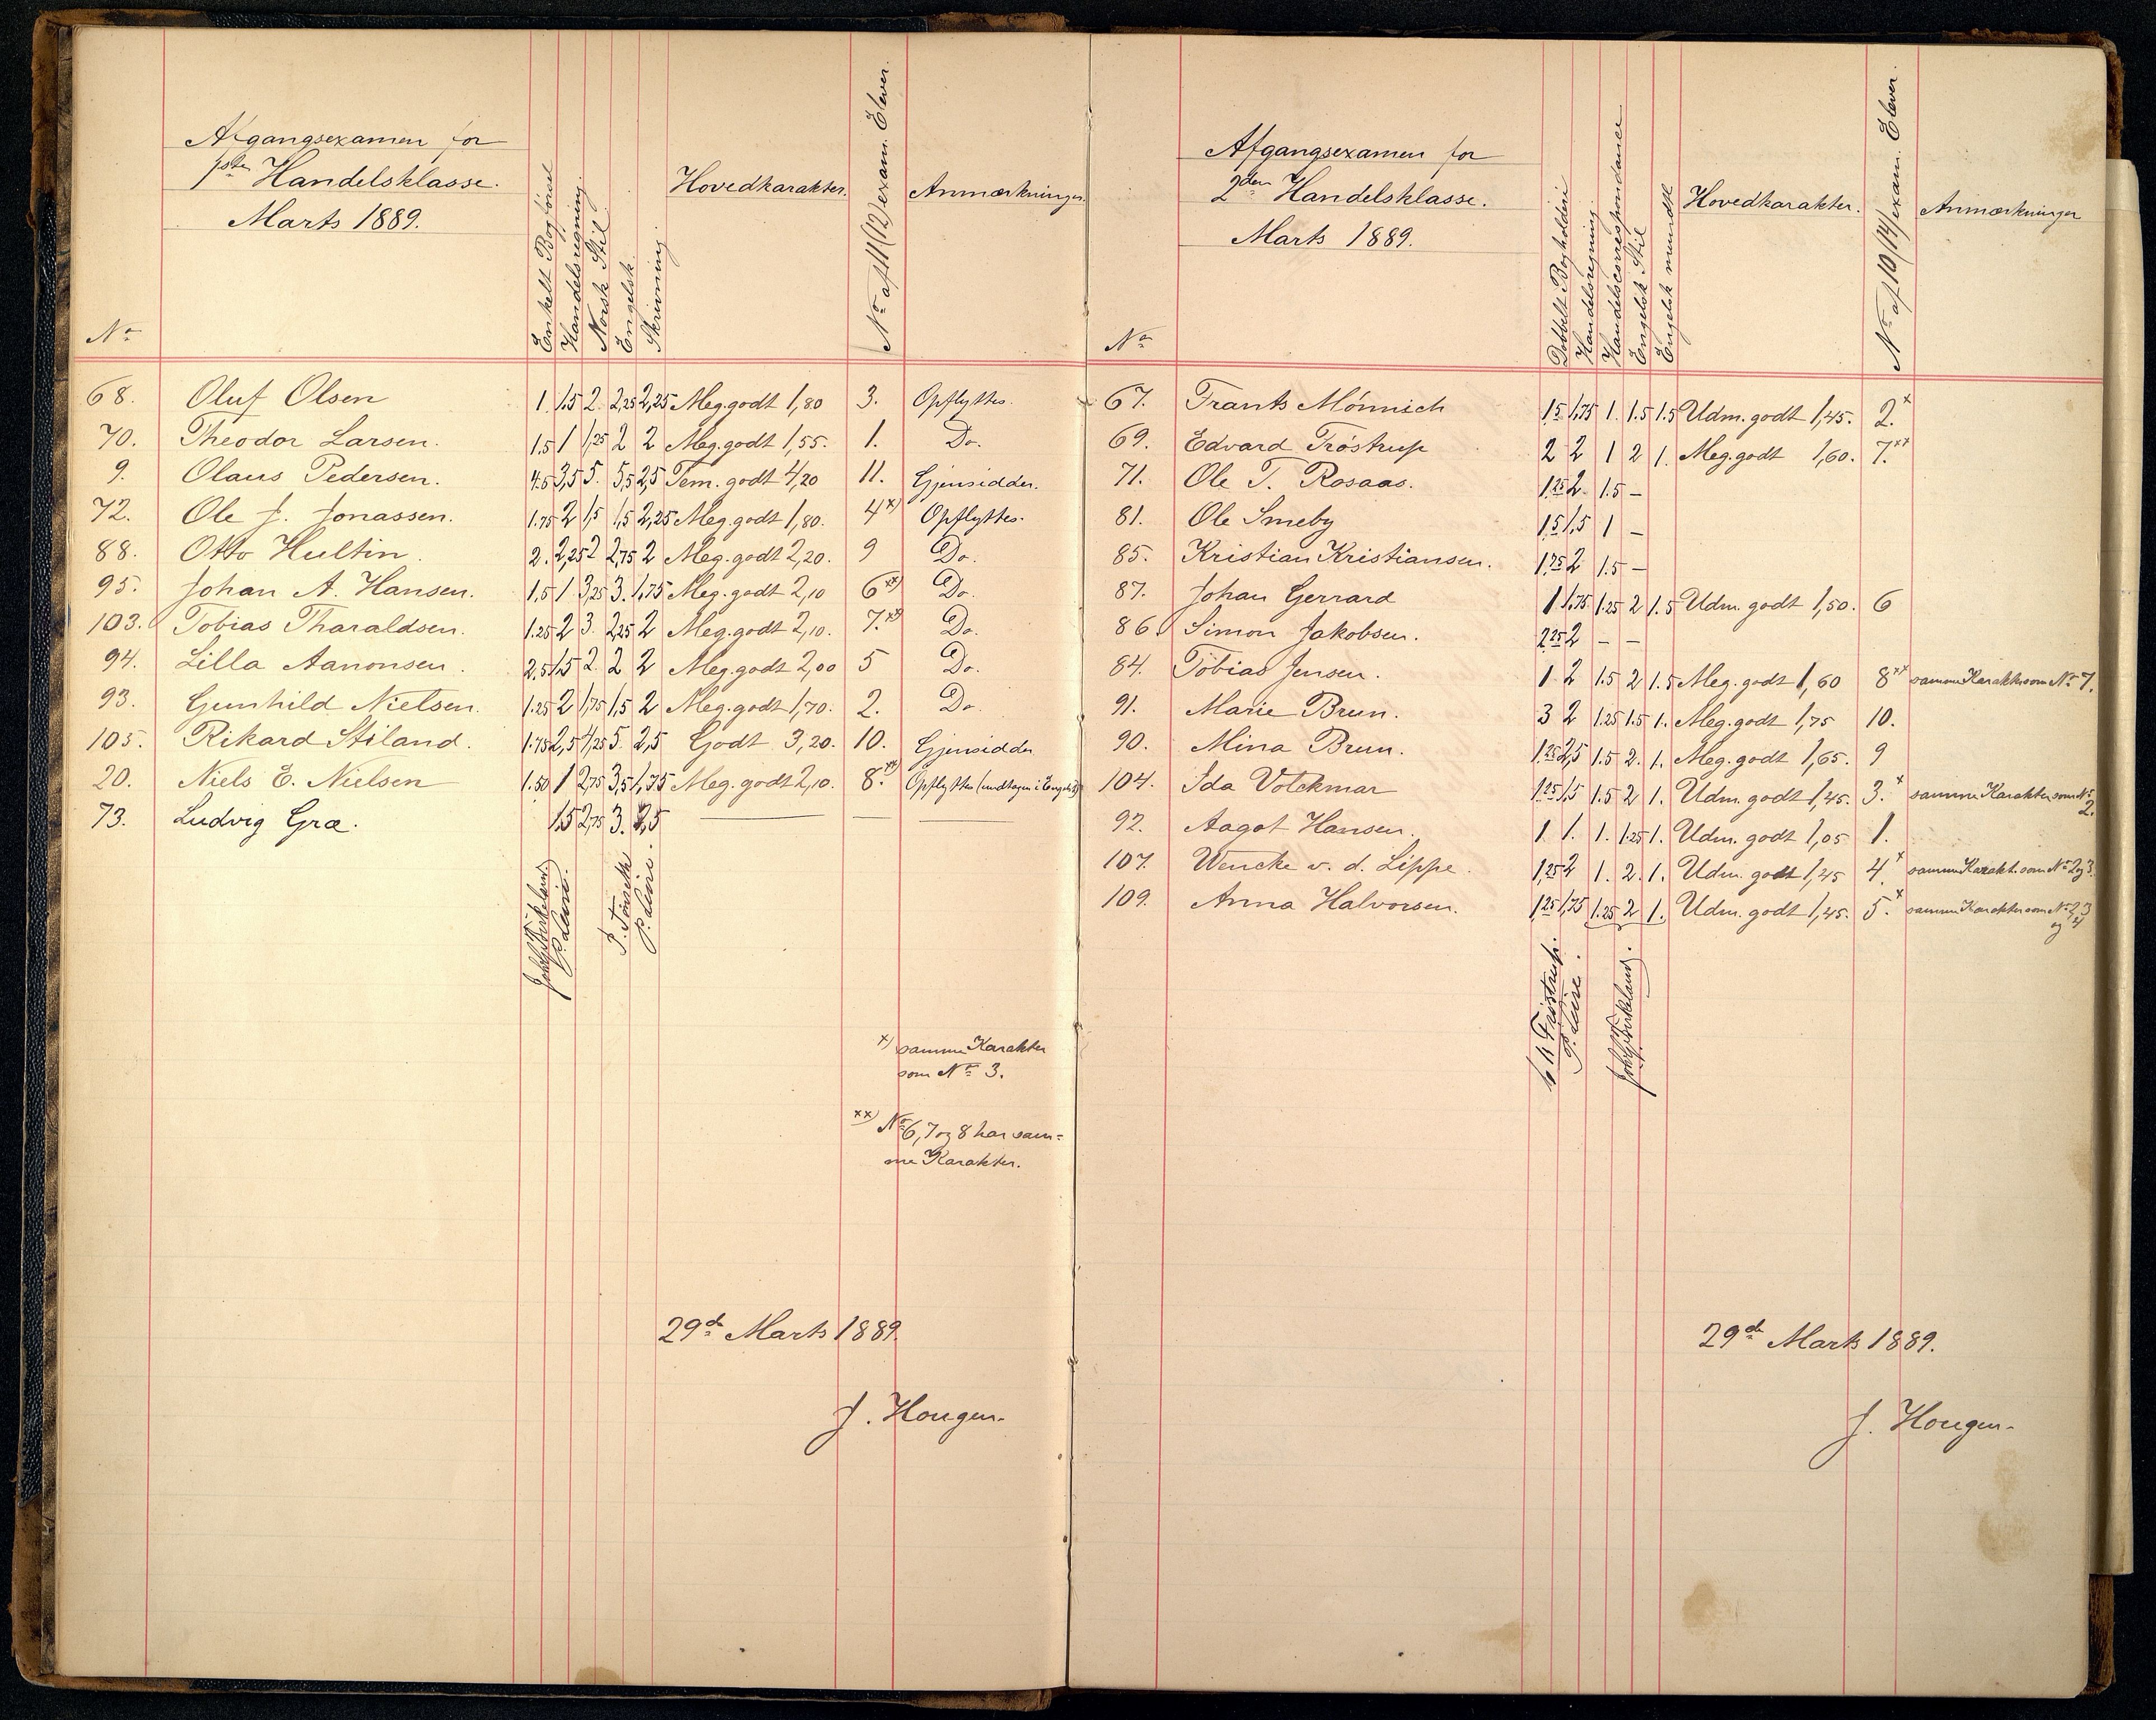 Afgangsexamen for
1ste Handelsklasse.
Marts 1889.
No
Enkelt Bogførsel
Handelsregning.
Norsk Stil
Engelsk
Skrivning.
Hovedkarakter.
No af 11 (12) exam. Elever.
Anmærkninger.
68. Oluf Olsen 1 1.5 2. 2,25 2,25 Meg. godt 1,80 3. Opflyttes.
70. Theodor Larsen. 1.5 1 1,25 2 2 Meg. godt 1,55. 1. Do.
9. Olaus Pedersen. 4.5 3,5 5. 5,5 2,5 Tem. godt 4,20 11. Gjensidder.
72. Ole J. Jonassen. 1.75 2 1,5 1,5 2,25 Meg. godt 1,80. 4 x) Opflyttes.
88. Otto Hultin. 2. 2,25 2 2,75 2 Meg. godt 2,20. 9 Do.
95. Johan A. Hansen. 1,5 1 3,25 3. 1,75 Meg. godt 2,10 6 xx) Do.
103. Tobias Tharaldsen. 1.25 2 3. 2,25 2 Meg. godt 2,10. 7. xx) Do.
94. Lilla Aanonsen. 2,5 1,5 2. 2 2 Meg. godt 2,00 5 Do.
93. Gunhild Nielsen. 1.25 2 1,75 1,5 2 Meg. godt 1,70. 2. Do.
105. Rikard Stiland. 1.75 2,5 4,25 5. 2,5 Godt 3,20. 10. Gjensidder
20. Niels E. Nielsen 1.50 1 2,75 3,5 1,75 Meg. godt 2,10. 8. xx) Opflyttes (undtagen i Engelsk)
73. Ludvig Gra. 1.5 2,75 3. 2,5 — — —
P. Leire.
P. Leire.
x) samme Karakter
som No 3.
xx) No 6, 7 og 8 har sam-
me Karakter.
29de Marts 1889.
J. Hougen.
Afgangsexamen for
2den Handelsklasse.
Marts 1889.
No
Dobbelt Bogholderi
Handelsregning.
Handelscorrespondance
Engelsk Stil
Engelsk mundtl
Hovedkarakter.
No af 10 (14) exam. Elever.
Anmærkninger
67. Frants Mönnich 1.5 1,75 1. 1.5 1.5 Udm. godt 1,45. 2. x
69. Edvard Tröstrup 2 2 1 2 1. Meg. godt 1,60. 7. xx
71. Ole T. Rosaas. 1.25 2. 1.5 –
81. Ole Smeby 1.5 1,5 1 –
85. Kristian Kristiansen. 1,75 2 1.5 –
87. Johan Gerrard 1 1.75 1.25 2 1.5 Udm. godt 1,50. 6
86. Simon Jakobsen. 2.25 2 – –
84. Tobias Jensen. 1 2 1.5 2 1.5 Meg. godt 1,60 8 xx samme Karakter som No 7.
91. Marie Brun. 3 2 1.25 1.5 1. Meg. godt 1,75 10.
90. Mina Brun. 1.25 2,5 1.5 2. 1. Meg. godt 1,65. 9
104. Ida Volckmar 1.25 1,5 1.5 2 1. Udm. godt 1,45. 3. x samme Karakter som No
2.
92. Aagot Hansen. 1 1. 1. 1.25 1. Udm. godt 1,05 1.
107. Wencke v. d. Lippe. 1,25 2 1. 2. 1. Udm. godt 1,45 4. x samme Karakt. som No 2 og 3.
109. Anna Halvorsen. 1.25 1,75 1.25 2 1. Udm. godt 1,45. 5. x samme Karakter som No 2, 3
og 4
P. Leire.
29de Marts 1889.
J. Hougen.